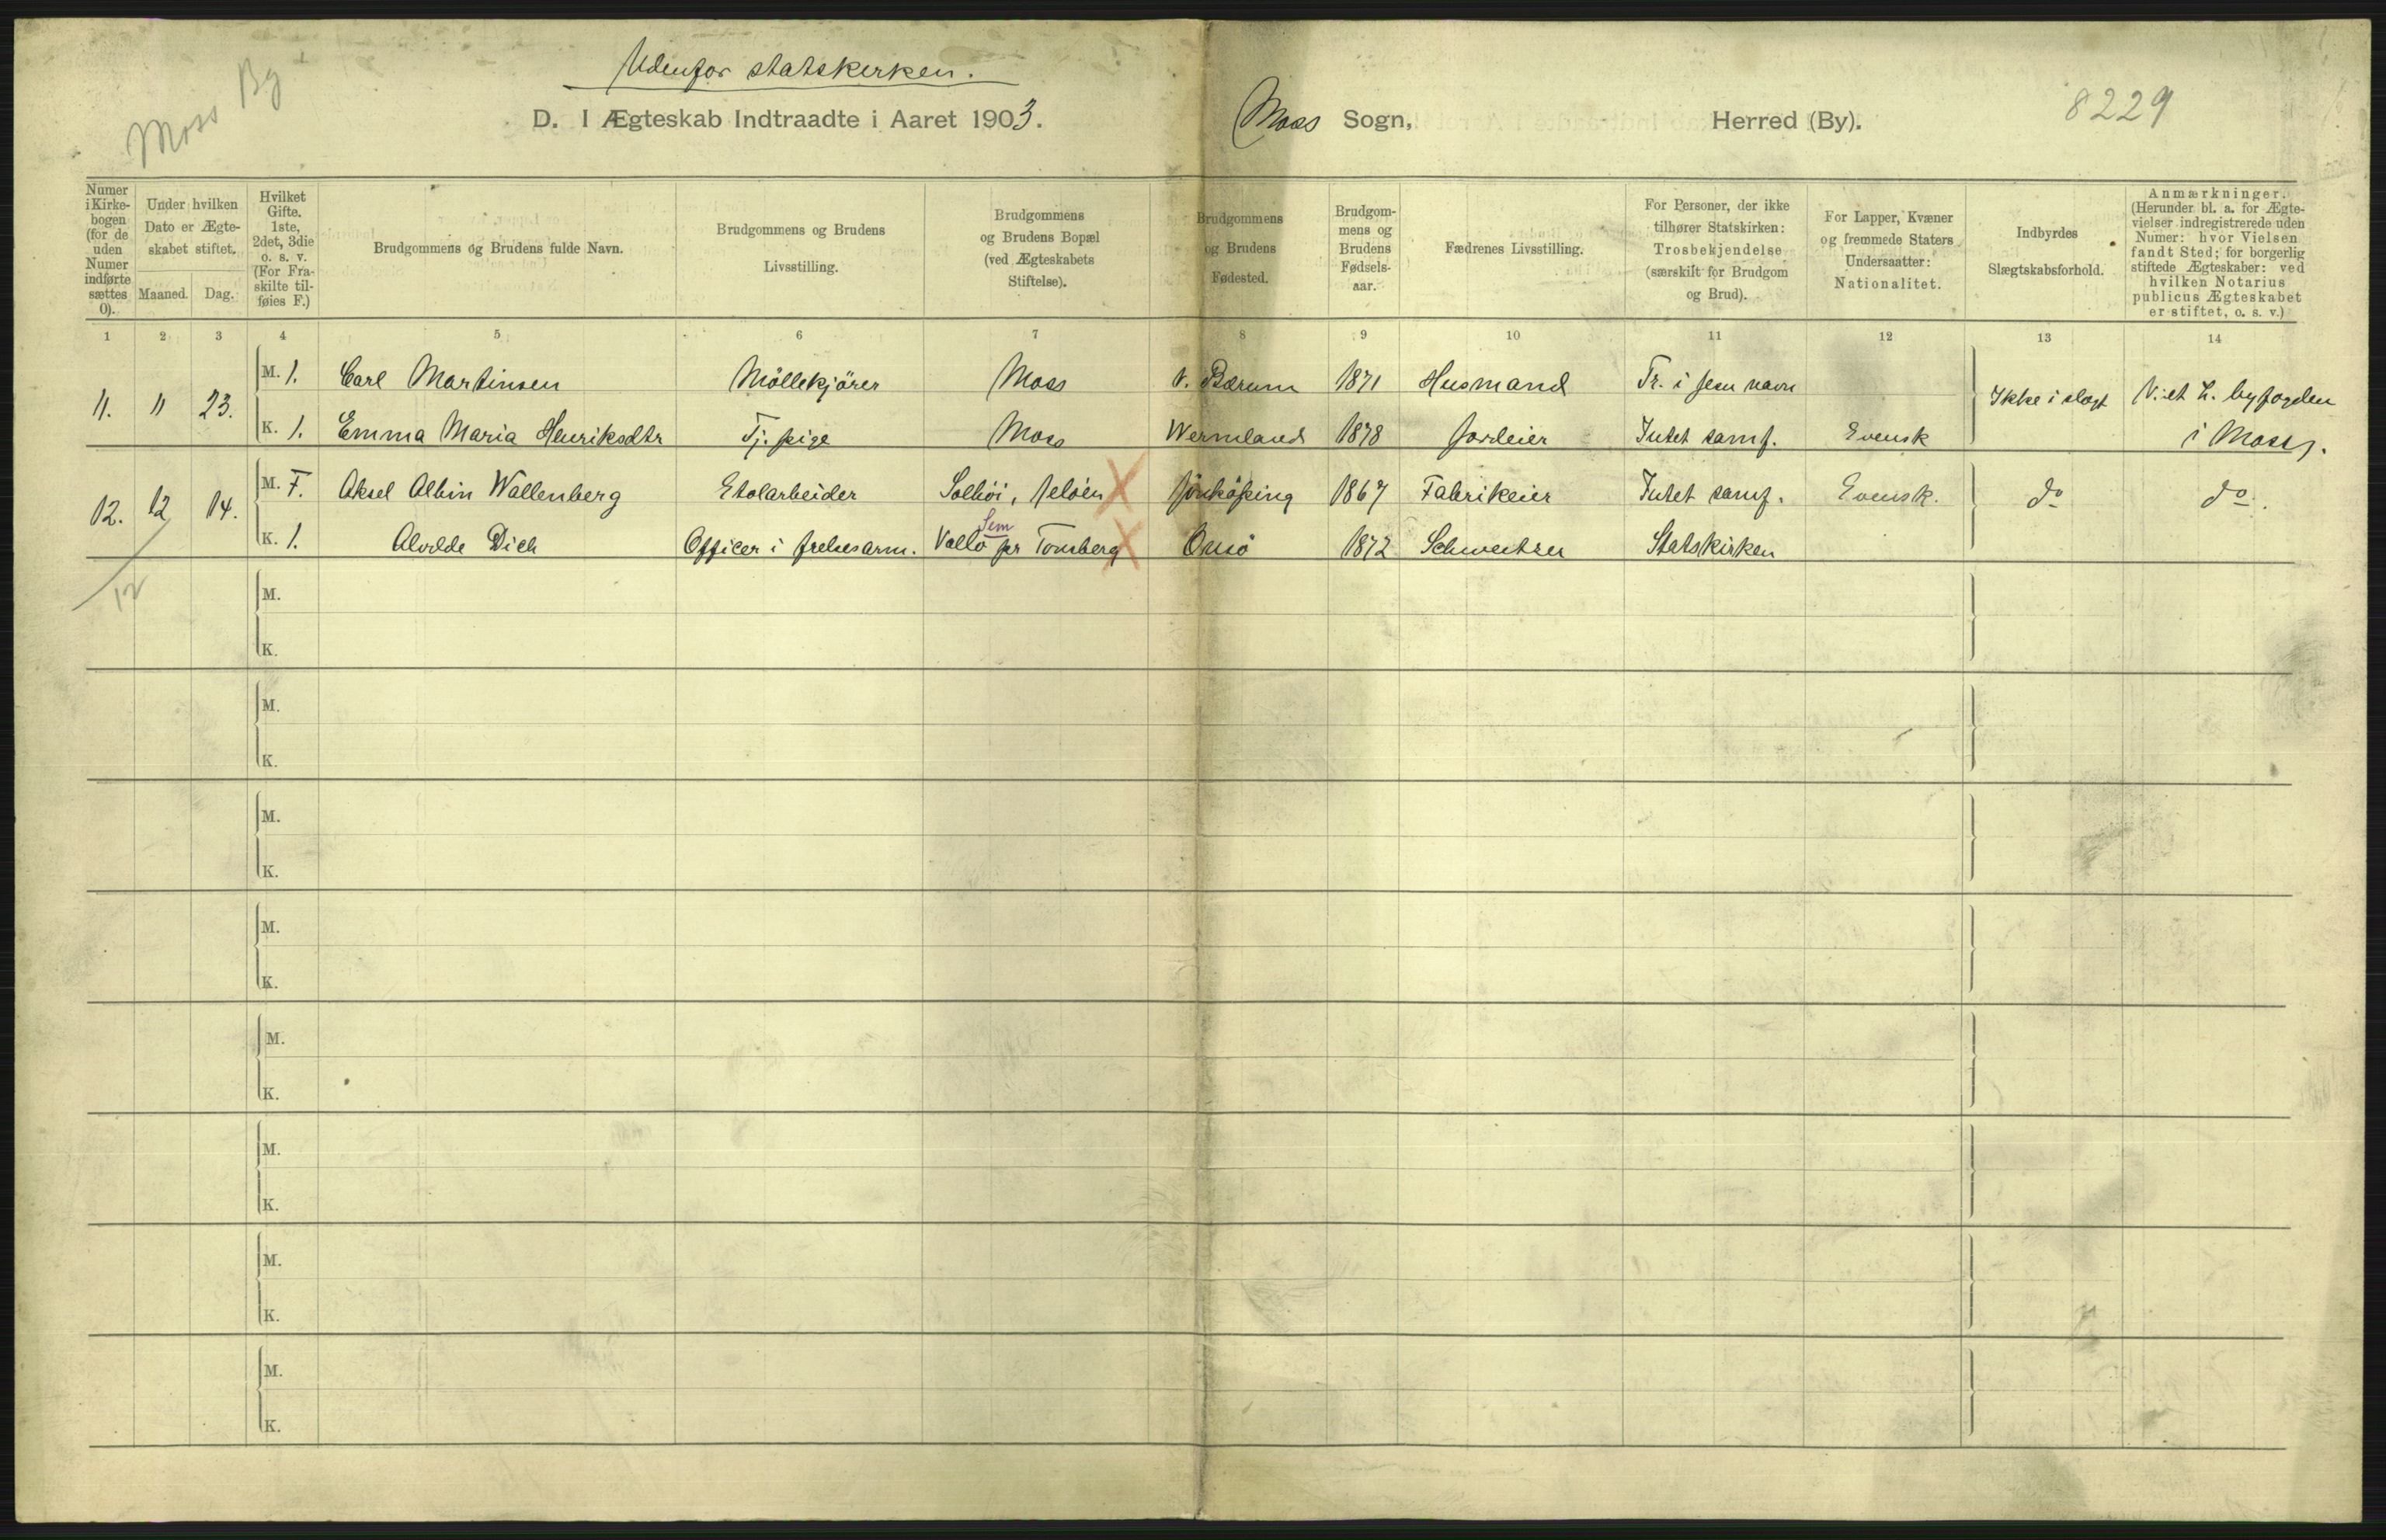 Moss By
Udenfor statskirken.
D. I Ægteskab Indtraadte i Aaret 1903. Moss Sogn, Herred (By). 8229
Numer i Kirkebogen (for de uden Numer indførte sættes 0).
Under hvilken Dato er Ægteskabet stiftet.
Maaned. Dag.
Hvilket Gifte. 1ste, 2det, 3die o. s. v. (For Fraskilte tilføies F.)
Brudgommens og Brudens fulde Navn.
Brudgommens og Brudens Livsstilling.
Brudgommens og Brudens Bopæl (ved Ægteskabets Stiftelse).
Brudgommens og Brudens Fødested.
Brudgommens og Brudens Fødselsaar.
Fædrenes Livsstilling.
For Personer, der ikke tilhører Statskirken: Trosbekjendelse (særskilt for Brudgom og Brud).
For Lapper, Kvæner og fremmede Staters Undersaatter: Nationalitet.
Indbyrdes Slægtskabsforhold.
Anmærkninger. (Herunder bl. a. for Ægtevielser indregistrerede uden Numer: hvor Vielsen fandt Sted; for borgerlig stiftede Ægteskaber: ved hvilken Notarius publicus Ægteskabet er stiftet, o. s. v.)
1 2 3 4 5 6 7 8 9 10 11 12 13 14
11. 11 23. M. 1. Carl Martinsen Möllekjörer Moss V. Bærum 1871 Husmand Tr. i Jesu navn Ikke i slægt V. et h. byfogden
K. 1. Emma Maria Henriksdtr Tj. pige Moss Wermland 1878 Jordeier Intet samf. Svensk i Moss.
12. 12 14. M. F. Aksel Albin Wallenberg Stolarbeider Solhöi, Jelöen X Jönköping 1867 Fabrikeier Intet samf. Svensk. do do.
Sem
K. 1. Alvilde Dich Officer i frelsesarm. Vallö pr Tonsberg X Onsö 1872 Schweitzer Statskirken
12
M.
K.
M.
K.
M.
K.
M.
K.
M.
K.
M.
K.
M.
K.
M.
K.